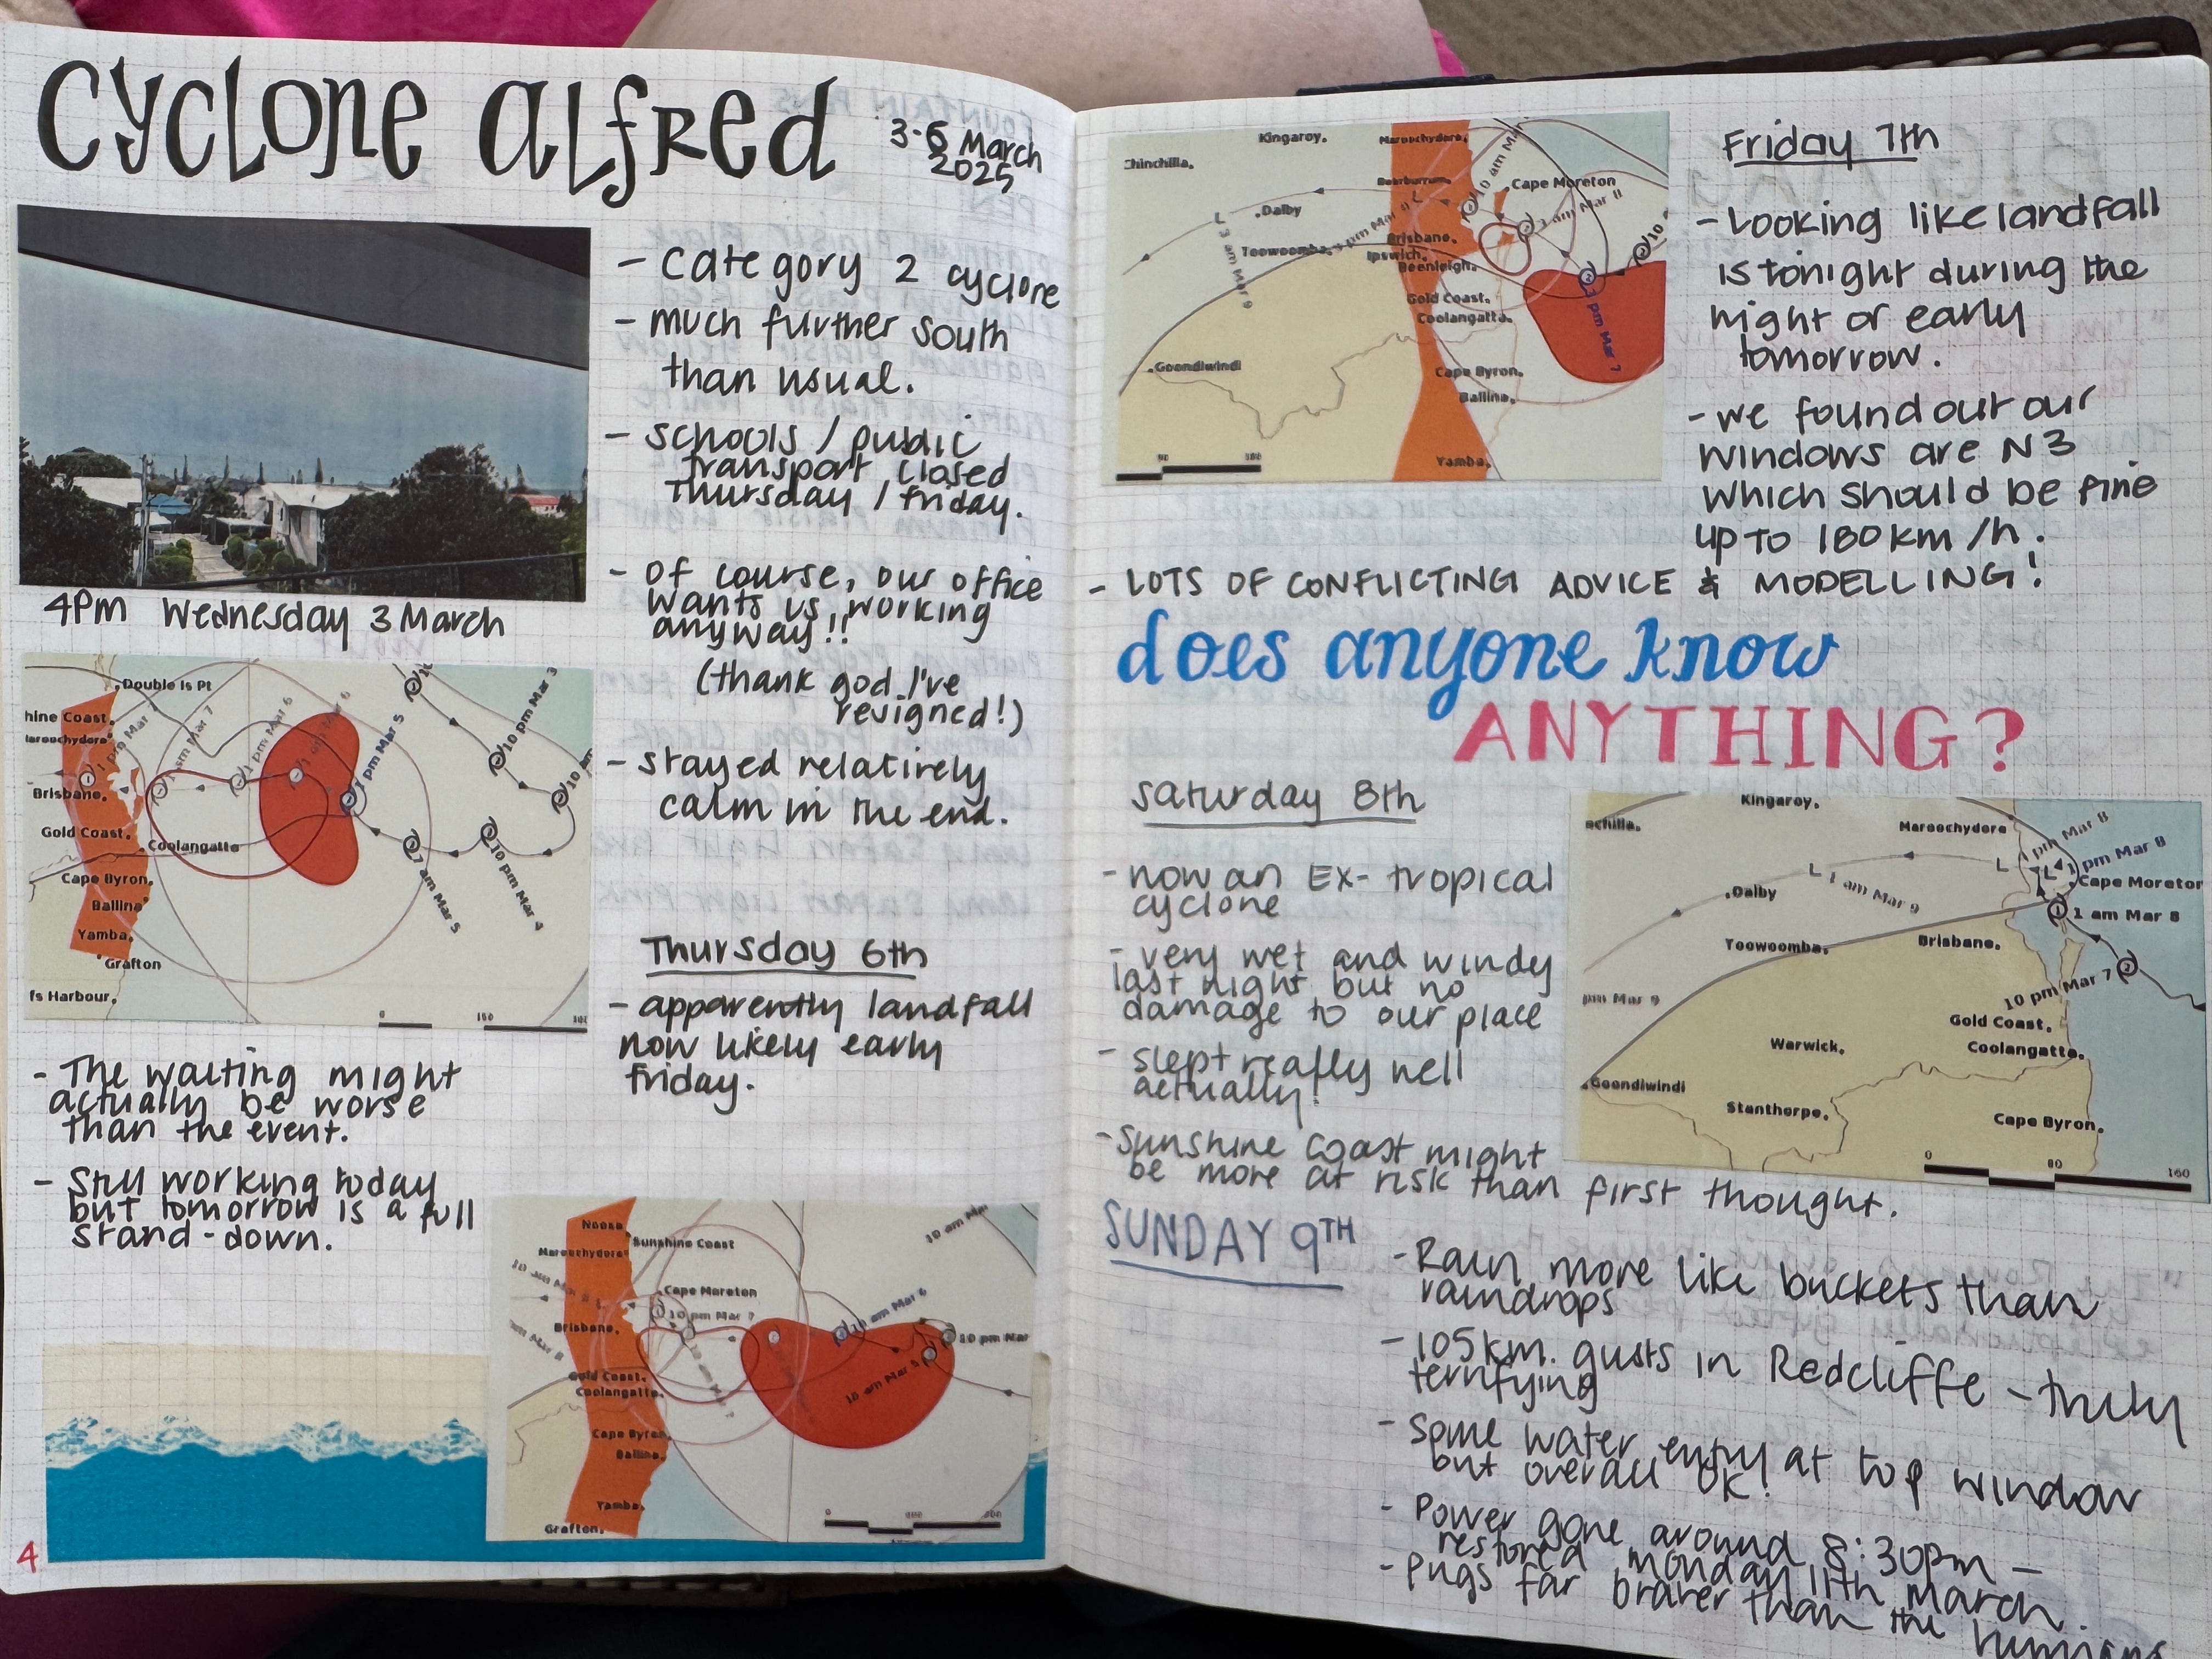 CYCLONE ALFRED
3-6 March
2025
- Category 2 cyclone
- much further south
than usual.
- schools / public
transport closed
Thursday / Friday.
- of course, our office
wants us working
anyway!!
(thank god I've
resigned!)
- stayed relatively
calm in the end.
4pm Wednesday 3 March
Double Is Pt
hine Coast
Maroochydore
Brisbane
Gold Coast
Coolangatta
Cape Byron
Ballina
Yamba
Grafton
fs Harbour
10 pm Mar 3
10 am
10 pm Mar 4
7 am Mar 5
pm Mar 5
1 pm Mar 6
am Mar 7
1 pm Mar
- The waiting might
actually be worse
than the event.
- Still working today
but tomorrow is a full
stand-down.
Thursday 6th
- apparently landfall
now likely early
friday.
Noosa
Maroochydore
Sunshine Coast
Cape Moreton
10 pm Mar 7
Brisbane
Gold Coast
Coolangatta
Cape Byron
Ballina
Yamba
Grafton
10 am Mar
10 am Mar 6
10 pm Mar
10 am Mar 5
4
Kingaroy
Maroochydore
Chinchilla
Cape Moreton
Dalby
Toowoomba
Brisbane
Ipswich
Beenleigh
Gold Coast
Coolangatta
Goondiwindi
Cape Byron
Ballina
Yamba
10 am Mar
am Mar 8
pm Mar 7
3 am Mar 9
Friday 7th
- Looking like landfall
is tonight during the
night or early
tomorrow.
- we found out our
windows are N3
which should be fine
up to 180km/h.
- LOTS OF CONFLICTING ADVICE & MODELLING!
does anyone know
ANYTHING?
Saturday 8th
- now an Ex-tropical
cyclone
- very wet and windy
last night but no
damage to our place
- slept really well
actually!
- Sunshine Coast might
be more at risk than first thought.
Kingaroy
chilla
Maroochydore
pm Mar 8
1 pm Mar 8
Cape Moreton
Dalby
1 am Mar 9
1 am Mar 8
Toowoomba
Brisbane
pm Mar 9
10 pm Mar 7
Gold Coast
Warwick
Coolangatta
Goondiwindi
Stanthorpe
Cape Byron
0 80 160
SUNDAY 9TH
- Rain more like buckets than
raindrops
- 105km. gusts in Redcliffe - truly
terrifying
- Some water entry at top window
but overall OK!
- Power gone around 8:30pm -
restored monday 11th march.
- Pugs far braver than the humans